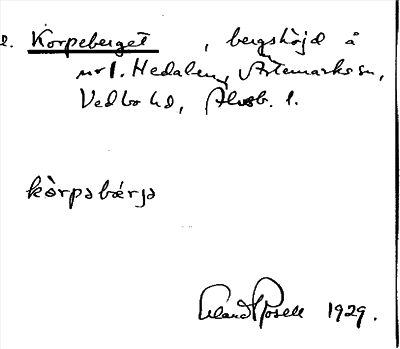 2. Korpeberget , bergshöjd å
nr 1. Hedalen, Ärtemarks sn,
Vedbo hd, Älvsb. l.
kòrpəbǽrjə
Erland Rosell 1929.